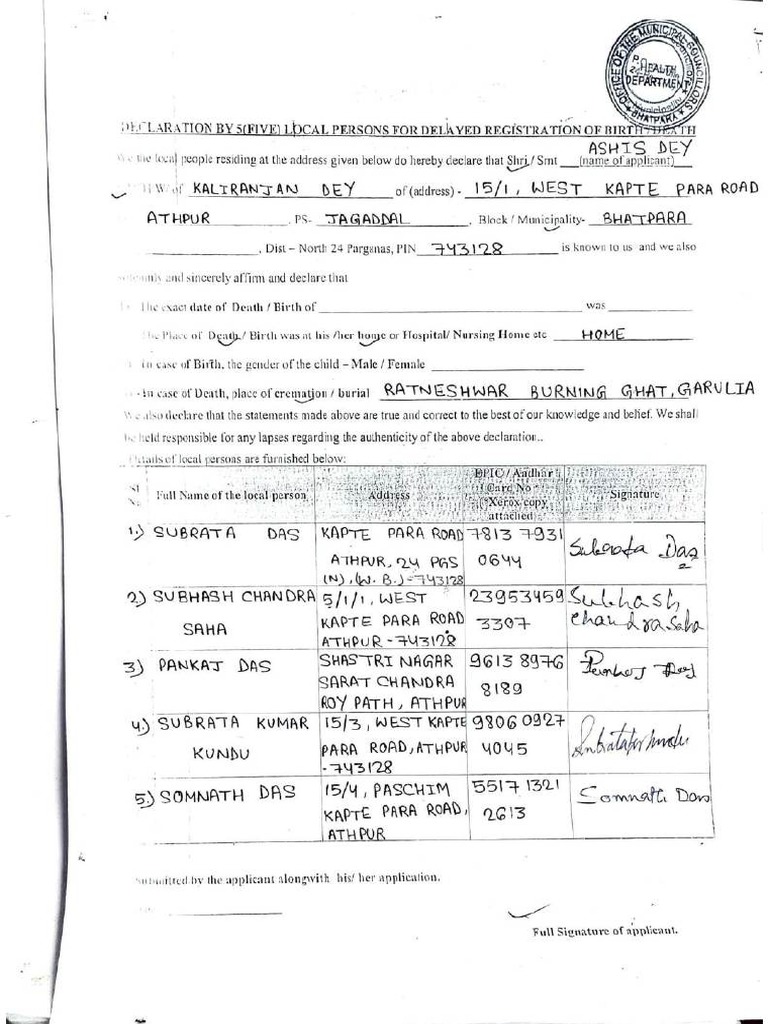 OFFICE OF THE MUNICIPAL COUNCILLORS
HEALTH
DEPARTMENT
BHATPARA
DECLARATION BY 5(FIVE) LOCAL PERSONS FOR DELAYED REGISTRATION OF BIRTH / DEATH
ASHIS DEY
We the local people residing at the address given below do hereby declare that Shri / Smt (name of applicant)
KALIRANJAN DEY of (address) - 15/1, WEST KAPTE PARA ROAD
ATHPUR , PS- JAGADDAL , Block / Municipality- BHATPARA
, Dist – North 24 Parganas, PIN 743128 is known to us and we also
solemnly and sincerely affirm and declare that
The exact date of Death / Birth of was
The Place of Death / Birth was at his /her home or Hospital/ Nursing Home etc HOME
In case of Birth, the gender of the child – Male / Female
In case of Death, place of cremation / burial RATNESHWAR BURNING GHAT, GARULIA
We also declare that the statements made above are true and correct to the best of our knowledge and belief. We shall
be held responsible for any lapses regarding the authenticity of the above declaration..
Details of local persons are furnished below:
Sl No Full Name of the local person Address EPIC / Aadhar Card No (Xerox copy attached) Signature
1.) SUBRATA DAS KAPTE PARA ROAD 7813 7931 Subrata Das
ATHPUR, 24 PGS 0644
(N), (W. B.) - 743128
2.) SUBHASH CHANDRA 5/1/1, WEST 23953459 Subhash
SAHA KAPTE PARA ROAD 3307 Chandra Saha
ATHPUR - 743128
3.) PANKAJ DAS SHASTRI NAGAR 9613 8976 Pankaj Das
SARAT CHANDRA 8189
ROY PATH, ATHPUR
4.) SUBRATA KUMAR 15/3, WEST KAPTE 9806 0927
KUNDU PARA ROAD, ATHPUR 4045
- 743128
5.) SOMNATH DAS 15/4, PASCHIM 5517 1321 Somnath Das
KAPTE PARA ROAD, 2613
ATHPUR
Submitted by the applicant alongwith his/ her application.
Full Signature of applicant.